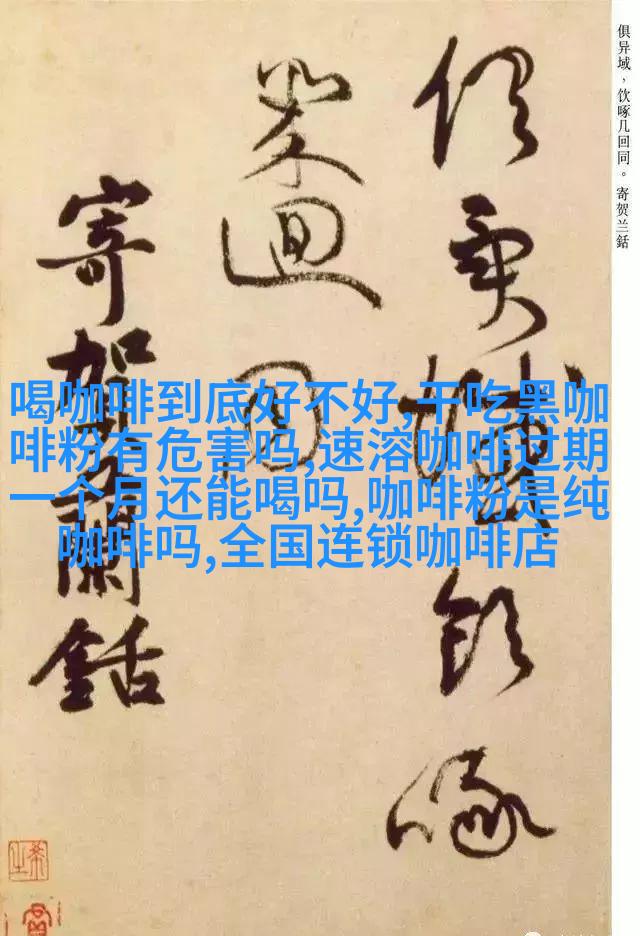 俱异域，饮啄几回同。寄贺兰銛
俱異域飲啄
幾迴同
寄賀蘭銛
喝咖啡到底好不好,干吃黑咖
啡粉有危害吗,速溶咖啡过期
一个月还能喝吗,咖啡粉是纯
咖啡吗,全国连锁咖啡店